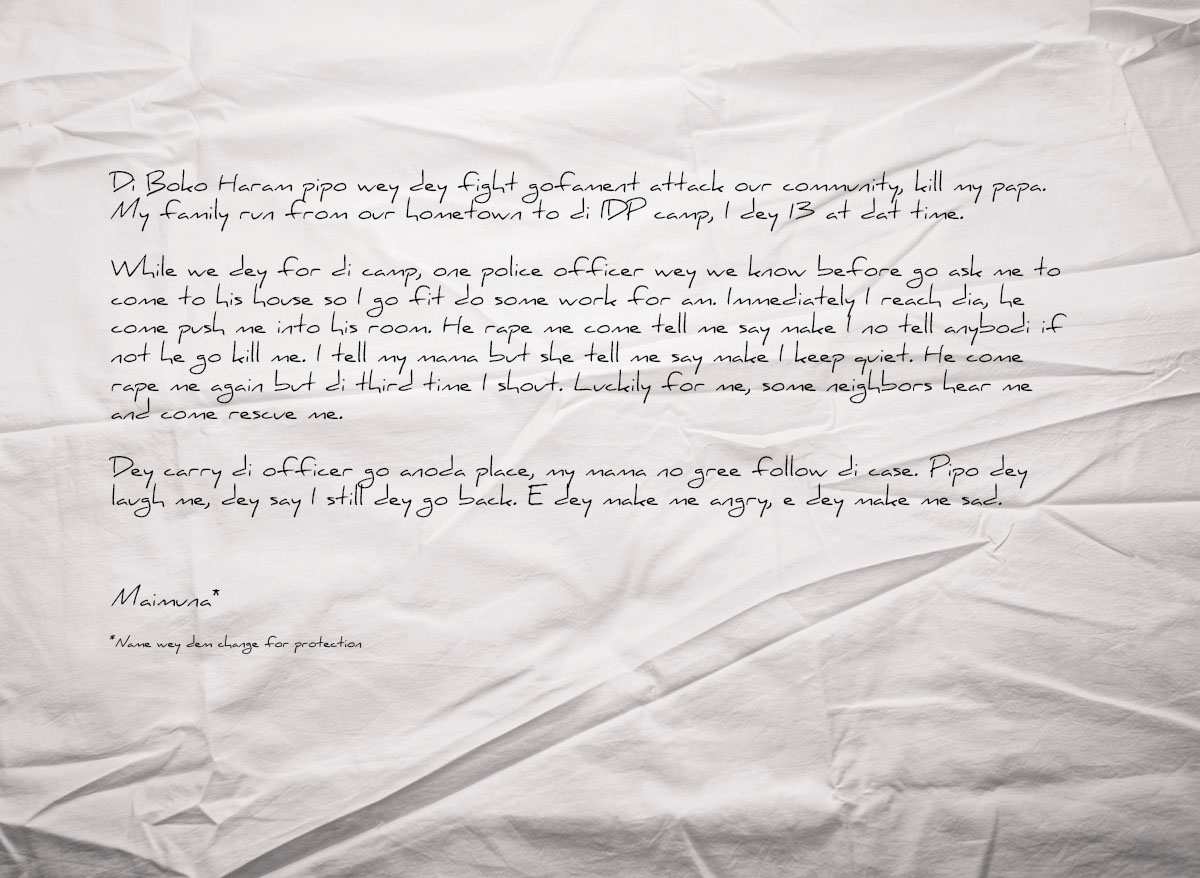 Di Boko Haram pipo wey dey fight gofament attack our community, kill my papa.
My family run from our hometown to di IDP camp, I dey 13 at dat time.
While we dey for di camp, one police officer wey we know before go ask me to
come to his house so I go fit do some work for am. Immediately I reach dia, he
come push me into his room. He rape me come tell me say make I no tell anybodi if
not he go kill me. I tell my mama but she tell me say make I keep quiet. He come
rape me again but di third time I shout. Luckily for me, some neighbors hear me
and come rescue me.
Dey carry di officer go anoda place, my mama no gree follow di case. Pipo dey
laugh me, dey say I still dey go back. E dey make me angry, e dey make me sad.
Maimuna*
*Name wey dem change for protection